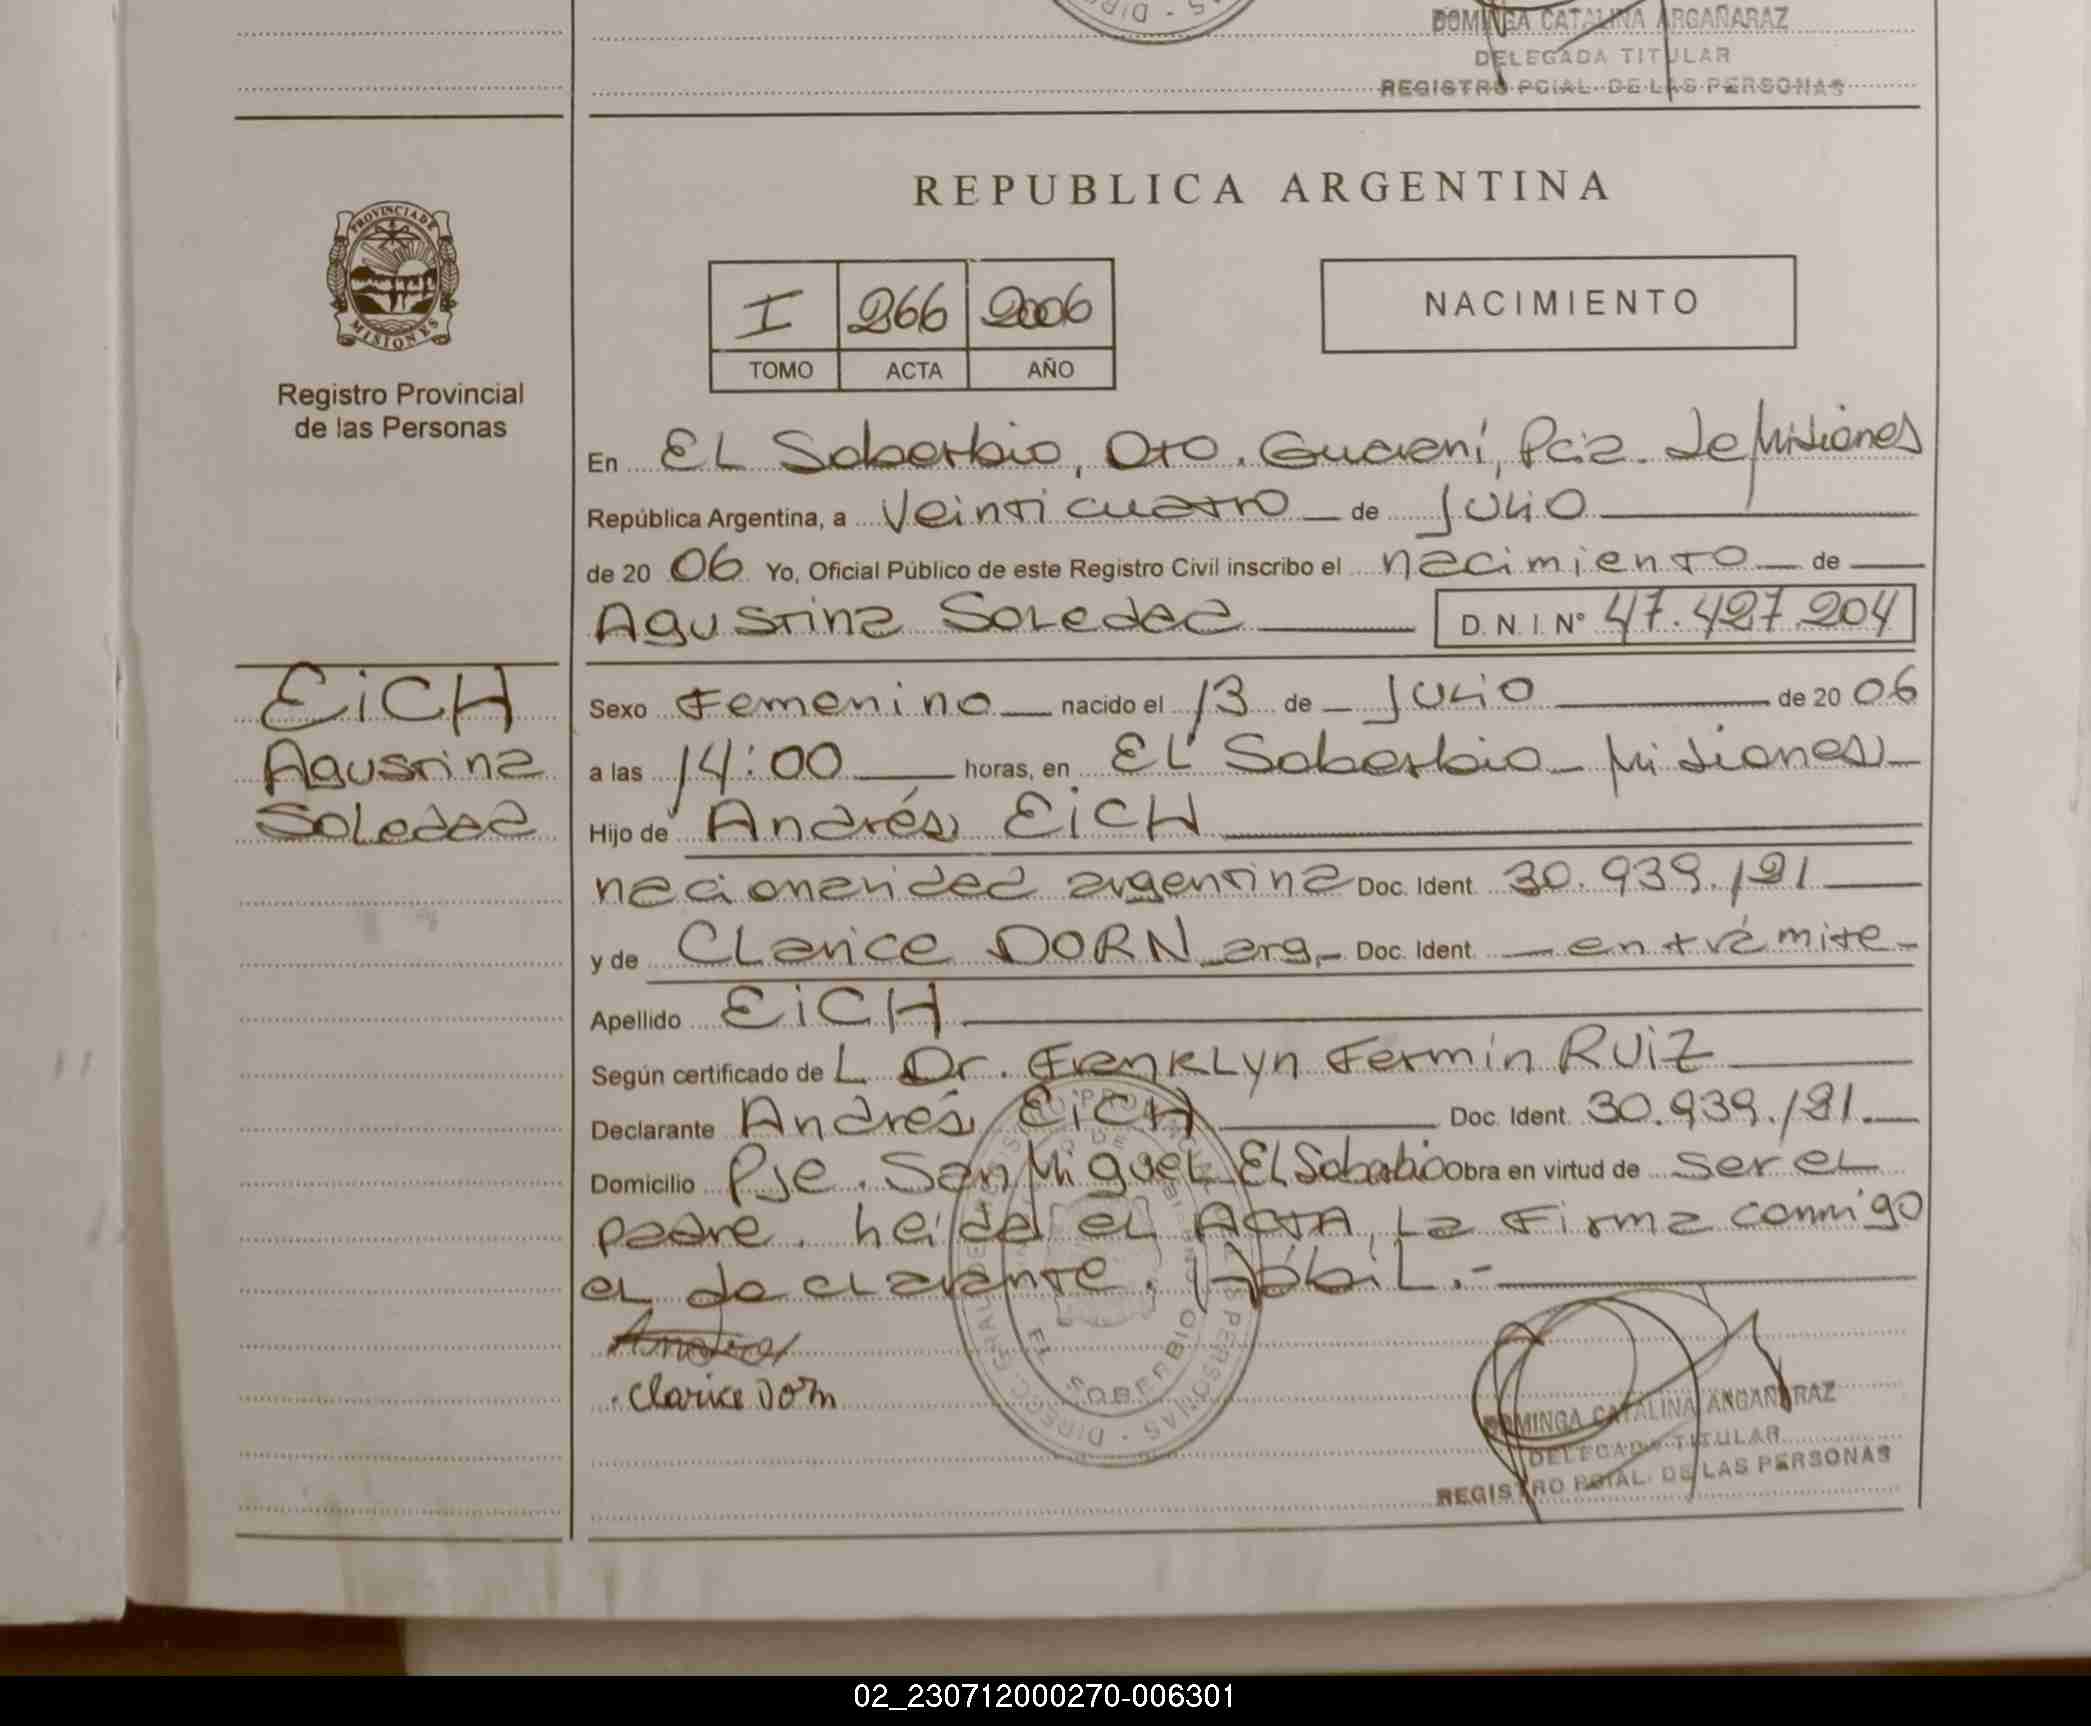 DOMINGA CATALINA ARGAÑARAZ
DELEGADA TITULAR
REGISTRO PCIAL. DE LAS PERSONAS
PROVINCIA DE
MISIONES
Registro Provincial
de las Personas
REPUBLICA ARGENTINA
I 266 2006
TOMO ACTA AÑO
NACIMIENTO
En EL Soberbio, Dto. Guaraní, Pcia. de Misiones
República Argentina, a Veinticuatro de Julio
de 20 06 Yo, Oficial Público de este Registro Civil inscribo el nacimiento de
Agustina Soledad D.N.I. N° 47.427.204
EiCH
Agustina
Soledad
Sexo Femenino nacido el 13 de Julio de 20 06
a las 14:00 horas, en EL Soberbio - Misiones -
Hijo de Andrés EiCH
nacionalidad argentina Doc. Ident. 30.939.121
y de Clarice DORN - arg. - Doc. Ident. - en trámite -
Apellido EiCH
Según certificado de L Dr. Franklyn Fermín RUIZ
Declarante Andrés EiCH Doc. Ident. 30.939.121.
Domicilio Pje. San Miguel - El Soberbio Obra en virtud de ser el
padre. heída el ACTA, La Firma conmigo
el declarante. Hábil.-
Clarice Dorn
EL SOBERBIO
DOMINGA CATALINA ARGAÑARAZ
DELEGADA TITULAR
REGISTRO PCIAL. DE LAS PERSONAS
02_230712000270-006301